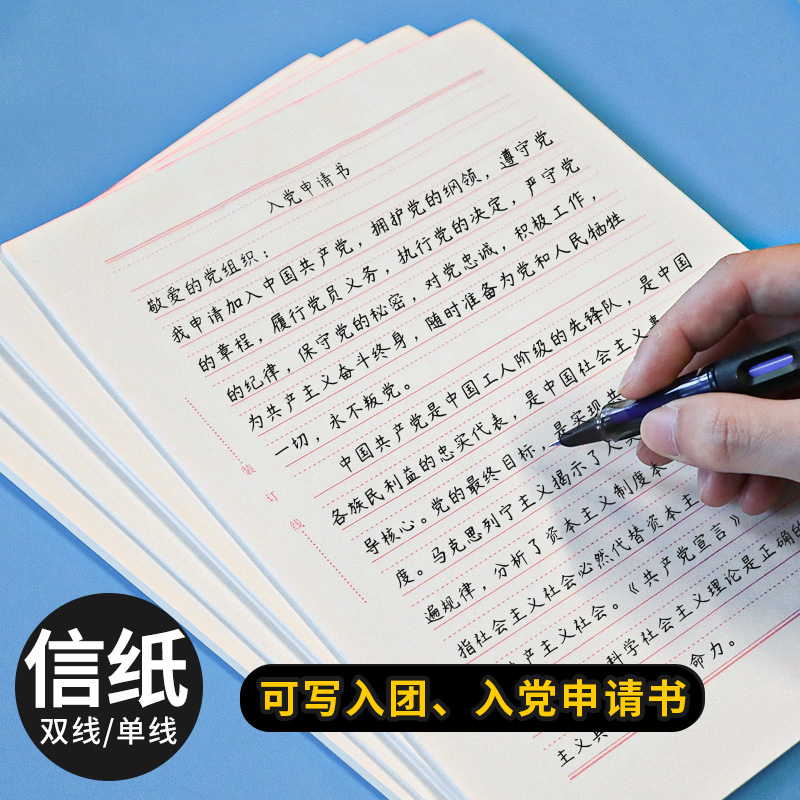 入党申请书
敬爱的党组织：
我申请加入中国共产党，拥护党的纲领，遵守党
的章程，履行党员义务，执行党的决定，严守党
的纪律，保守党的秘密，对党忠诚，积极工作，
为共产主义奋斗终身，随时准备为党和人民牺牲
一切，永不叛党。
中国共产党是中国工人阶级的先锋队，是中国
各族民利益的忠实代表，是中国社会主义事
导核心。党的最终目标，是实现共
度。马克思列宁主义揭示了人类
遍规律，分析了资本主义制度本
指社会主义社会必然代替资本主
产主义社会。《共产党宣言》
科学社会主义理论是正确的
命力。
主义共
装订线
信纸
双线/单线
可写入团、入党申请书